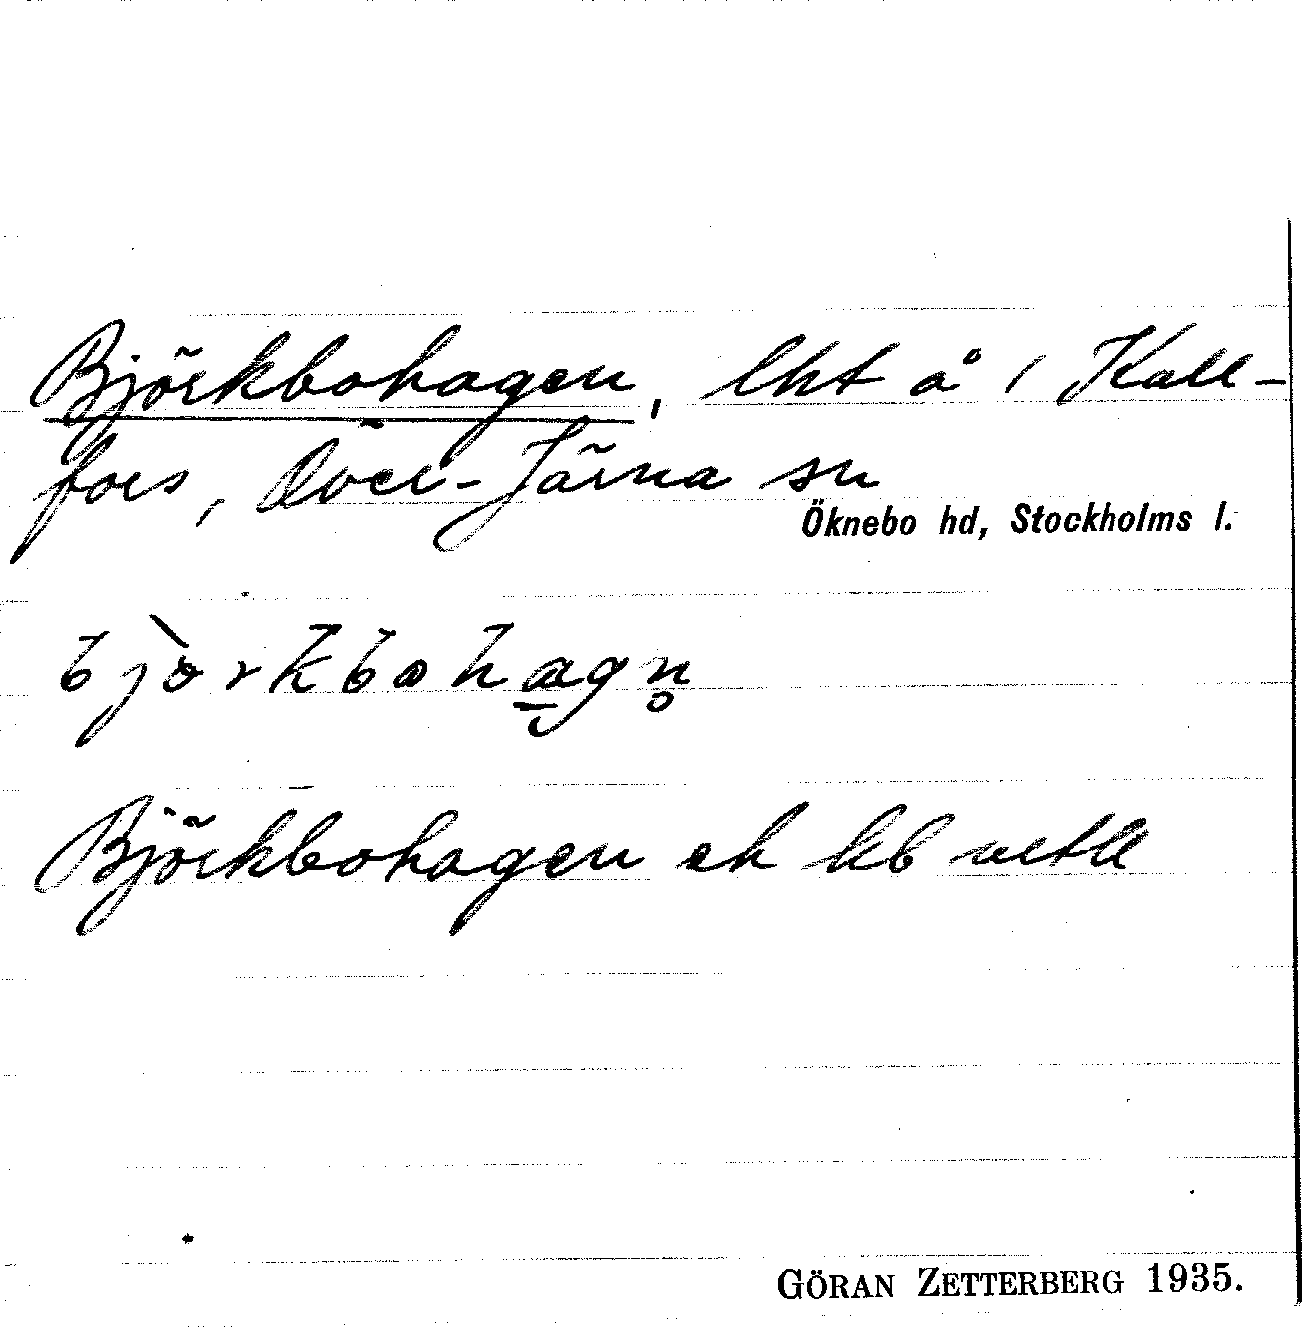 Björkbohagen, lht å 1 Kall-
fors, Över-Järna sn
Öknebo hd, Stockholms l.
bjòrkbohagn̥
Björkbohagen ek kb
GÖRAN ZETTERBERG 1935.